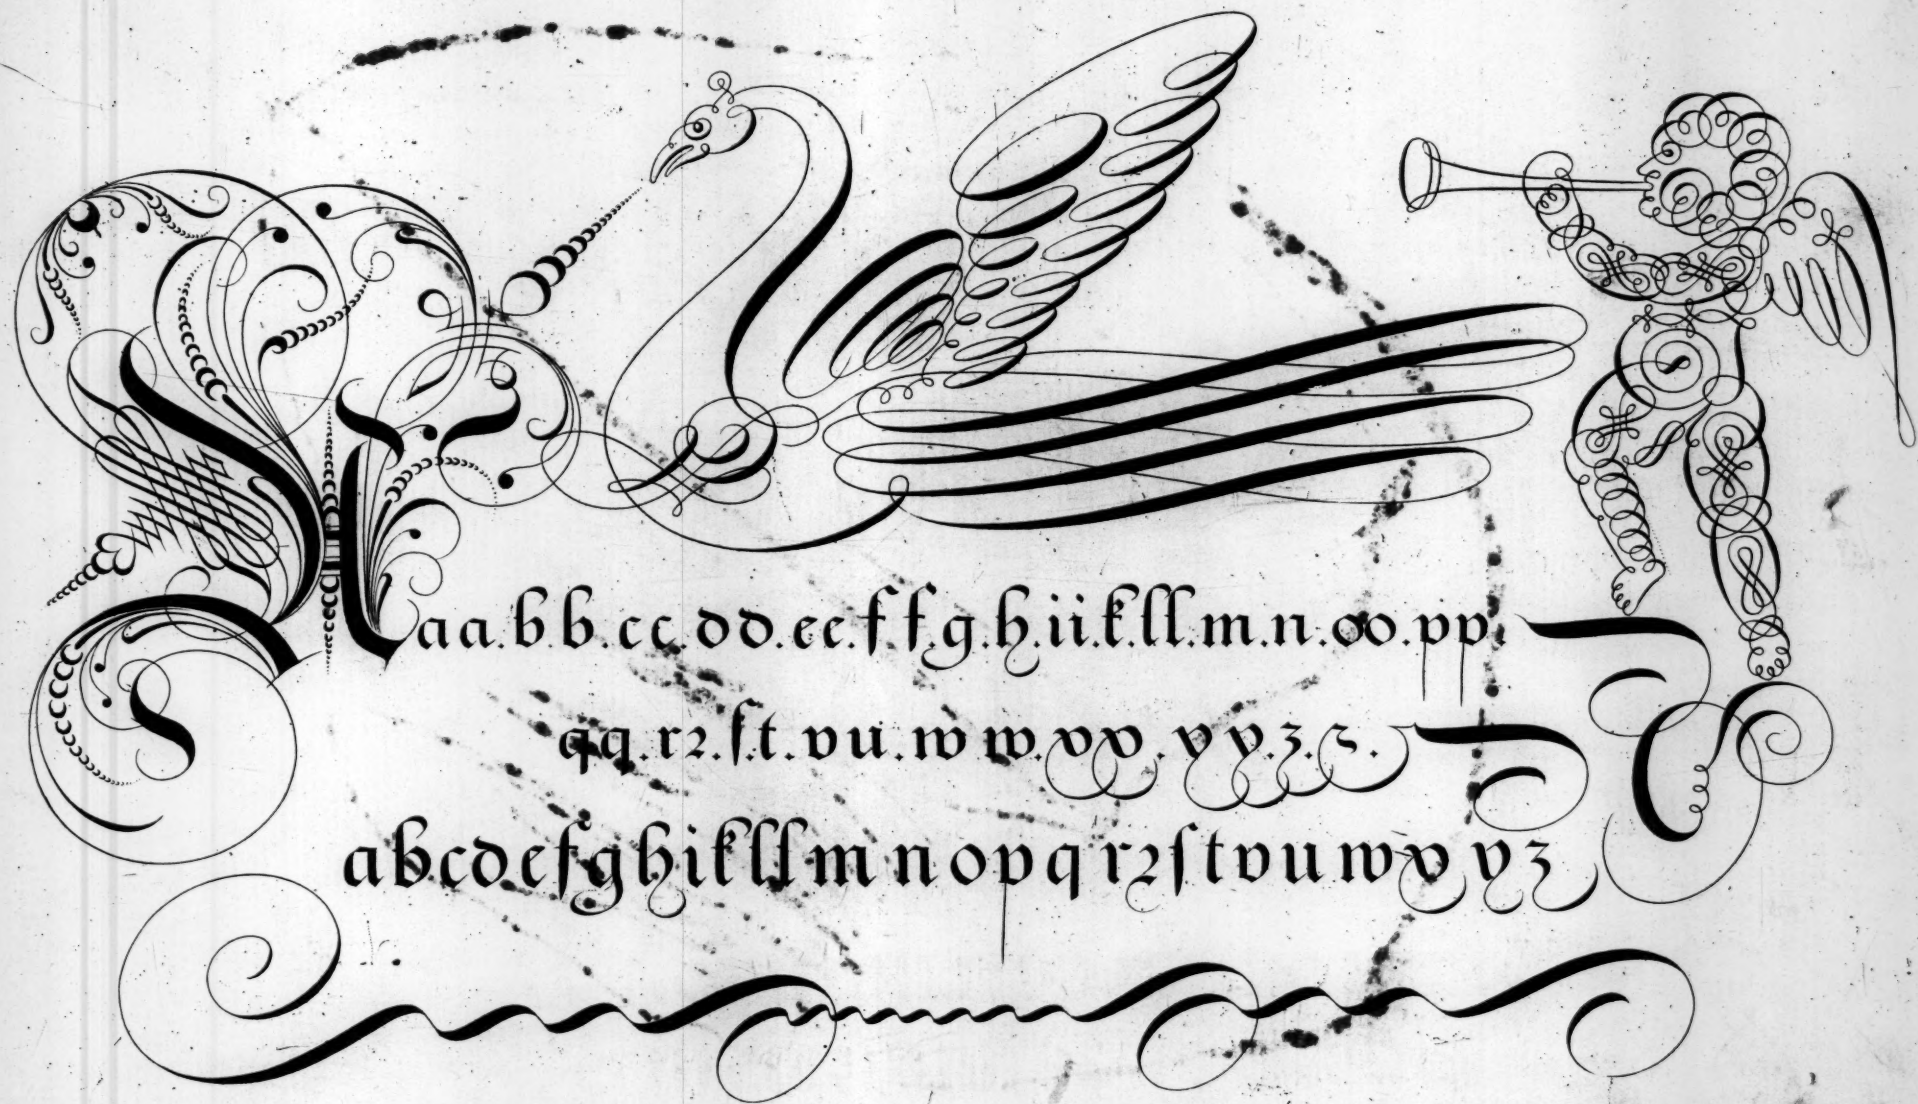 aa.bb.cc.dd.ee.ff.g.h.ii.k.ll.m.n.oo.pp.
qq.rꝛ.ſ.t.vu.ww.xx.yy.z.z.
abcdefghikllmnopqrꝛſtvuwxyz